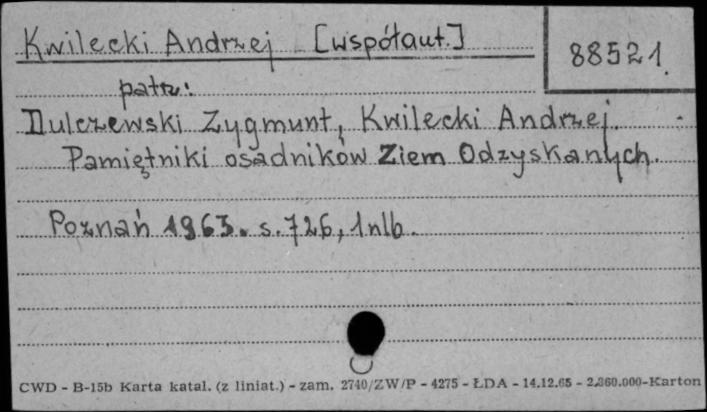 Kwilecki Andrzej [współaut.]
88521
patrz:
Dulczewski Zygmunt, Kwilecki Andrzej.
Pamiętniki osadników Ziem Odzyskanych.
Poznań 1963. s. 726, 1 nlb.
CWD - B-15b Karta katal. (z liniat.) - zam. 2740/ZW/P - 4275 - ŁDA - 14.12.65 - 2.360.000-Karton